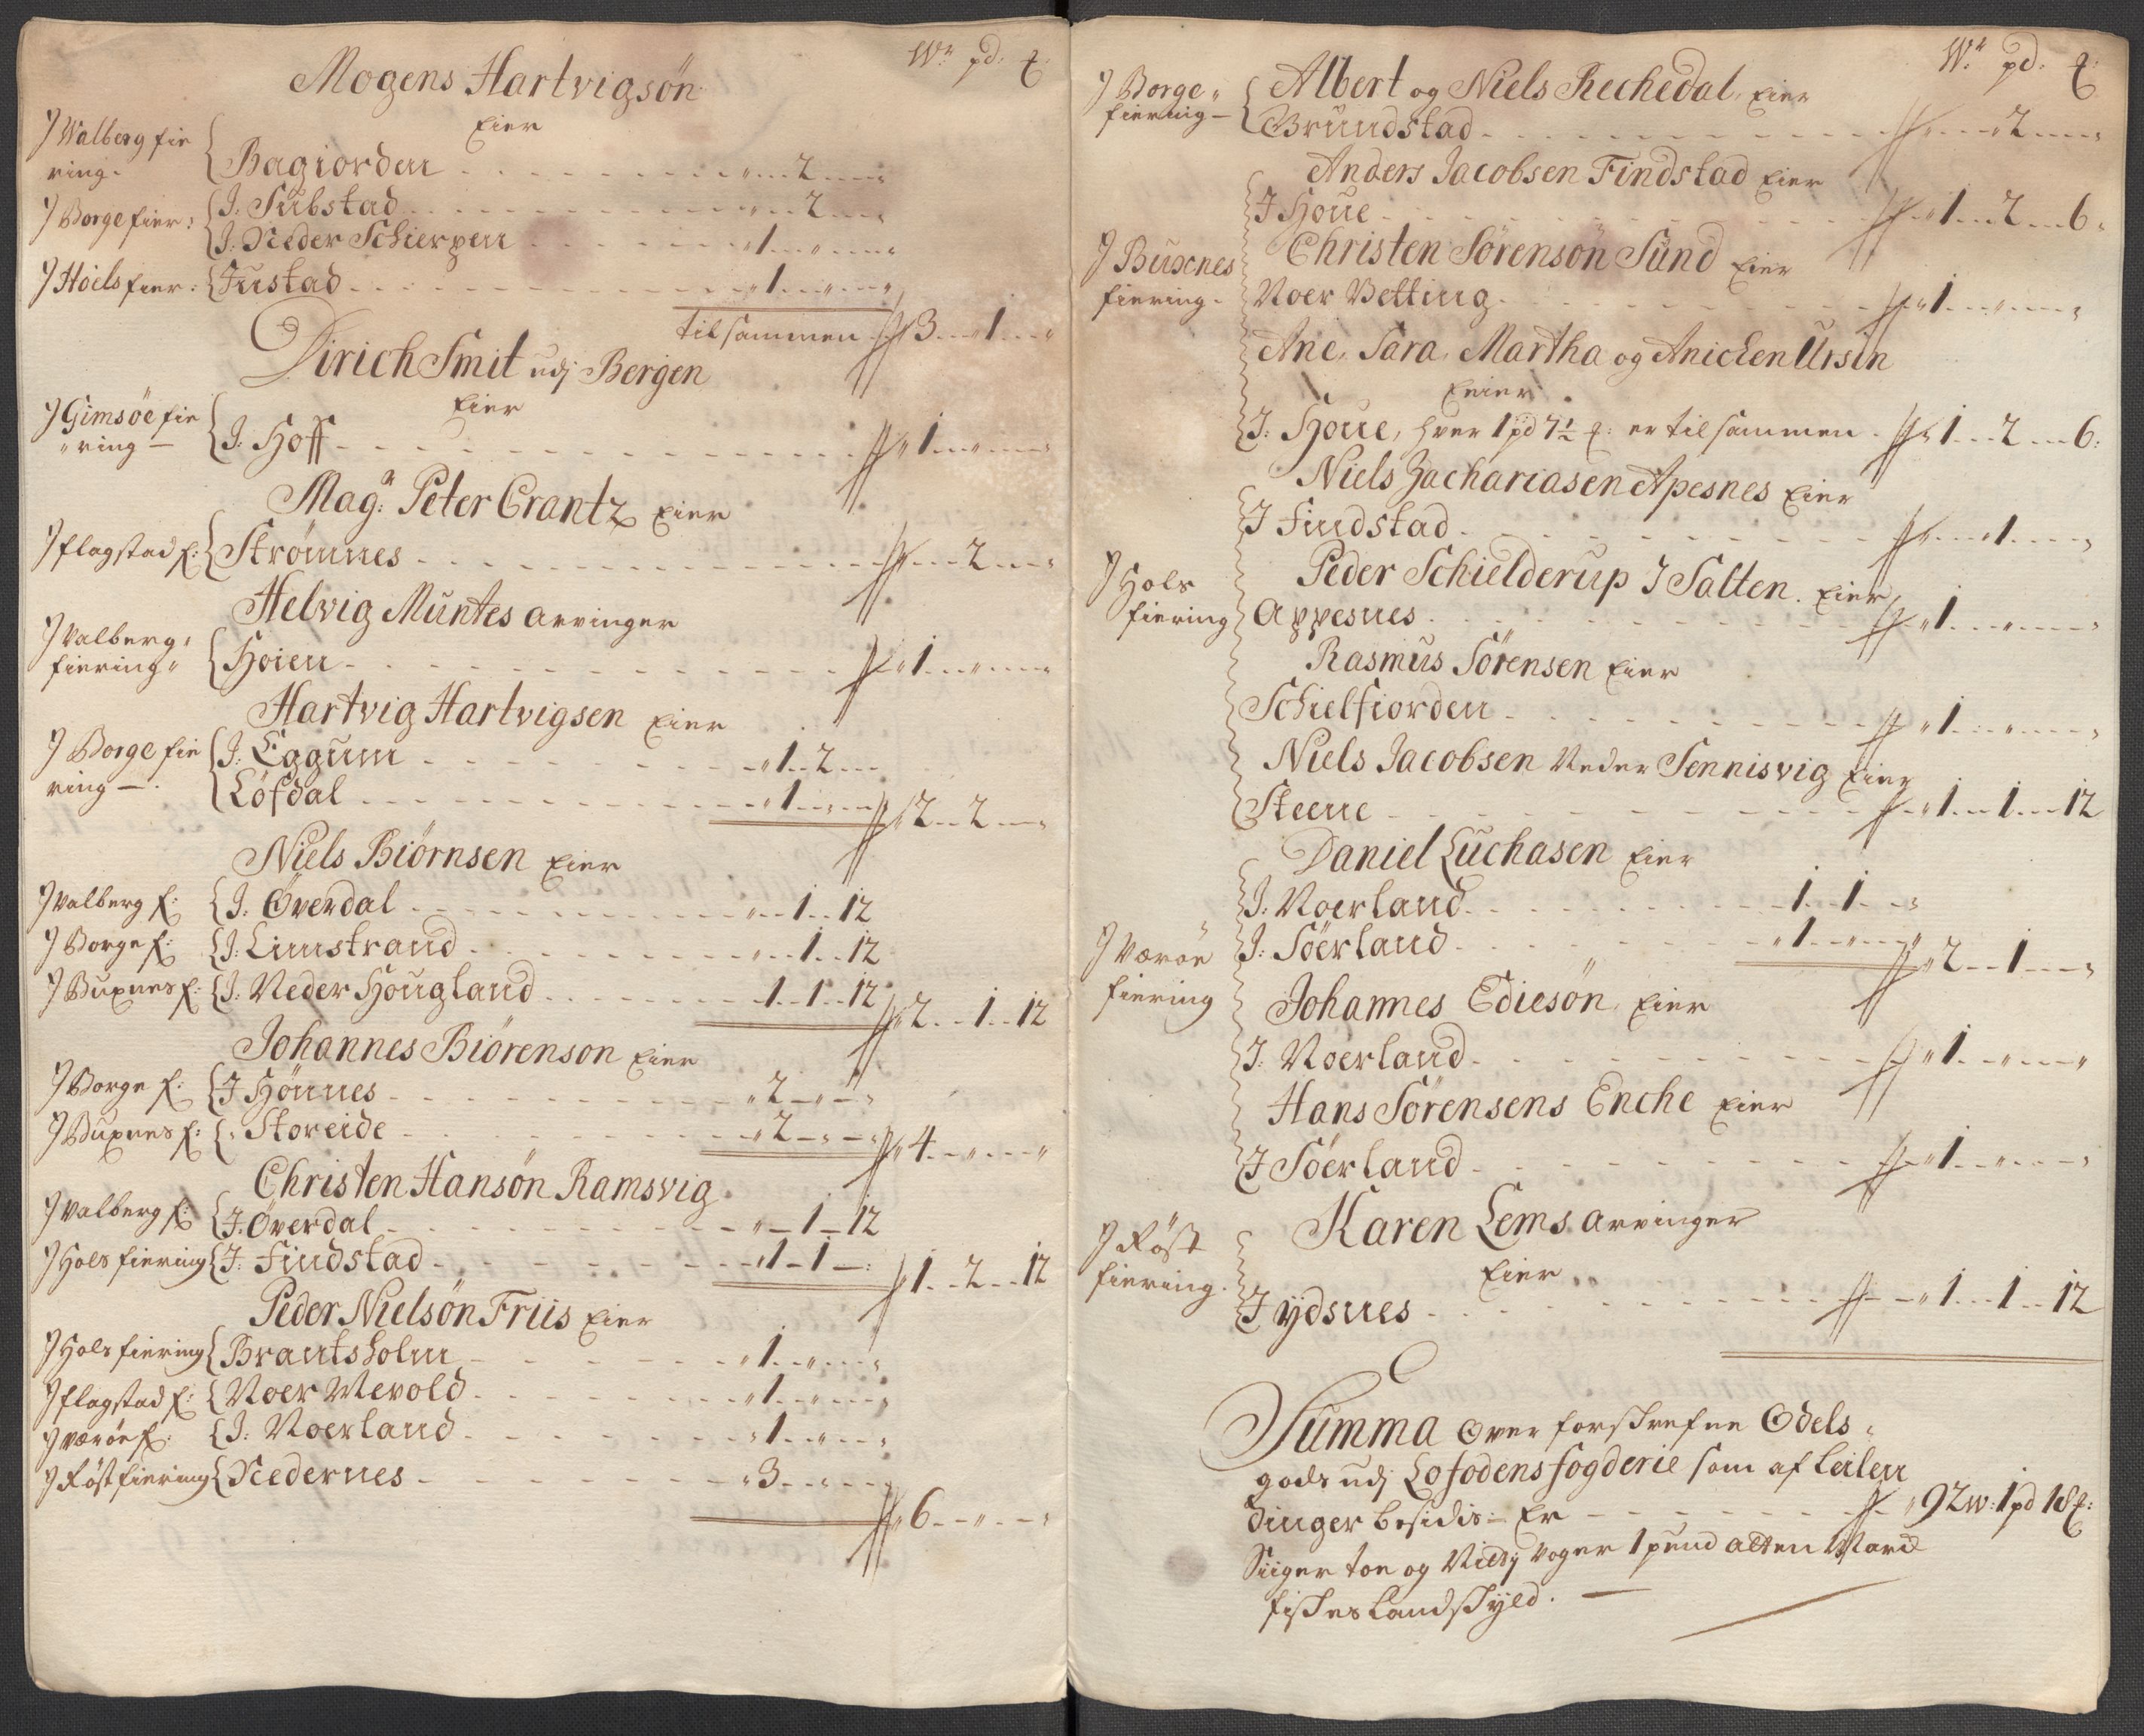 Wr pd: ℔:
Mogens Hartvigsøn
Eier
J Walberg fie
ring. { Bagiorden - - - „ - - 2 - - „
J Borge fier: { J. Substad - - - „ - - 2 - - „
J: Neder Schierpen - - - „ 1 - - „ - - „
J Hoels fier: { Justad - - - „ 1 - - „ - - „
tilsammen - 3 - - 1 - - „
Dirich Smit udj Bergen
Eier
J Gimsöe fie
ring — { J: Hoff - - - „ 1 - - „ - - „
Mag:r Peter Crantz Eier
J flagstad f: { Strömnes - - - 2 - - „
Helvig Muntes arvinger
J Valberg
fiering { Hoien - - - „ 1 - - „ - - „
Hartvig Hartvigsen Eier
J Borge fie
ring —. { J: Eggum - - - „ 1 - - 2 - -
Löfdal - - - „ 1 - - „ - - „ 2 - - 2 - - „
Niels Biörnsen Eier
J Valberg f: { J: Överdal - - - „ - - 1 - - 12
J Borge f: { J: Limstrand - - - „ - - 1 - - 12
J Buxnes f: { J: Neder Hougland - - - 1 - - 1 - - 12 „ 2 - - 1 - - 12
Johannes Biörenson Eier
J Borge f: { J Hönnes - - - „ 2 - „ - „
J Buxnes f: { „ Storeide - - - „ 2 - „ - „ 4 - - „ - - „
Christen Hansön Ramsvig
J Valberg f: { J. Överdal - - - „ - 1 - 12
J Hols fiering { J: Findstad - - - „ 1 - 1 - : 1 - - 2 - - 12
Peder Nielsön Friis Eier
J Hols fiering { Brantsholm - - - „ 1 - - „ - - „
J flagstad f: { Noer Mevold - - - „ 1 - - „ - - „
J Værøe f: { J: Noerland - - - „ 1 - - „ - - „
J Röst fiering { Nedernes - - - „ 3 - - „ - - „
6 - - „ - - „
Wr pd: ℔:
J Borge
fiering — { Albert og Niels Rechedal, Eier
Brundstad - - - „ - - 2 - - „
Anders Jacobsen Findstad Eier
J Houe - - - „ 1 - - 2 - - 6 „
J Buxnes
fiering - Christen Sörensön Sund Eier
Noer Vetting - - - „ 1 - - „ - - „
Ane, Sara, Martha og Anichen Ursin
Eeier
J: Houe, hver 1 pd 7½ ℔: er tilsammen - „ 1 - - 2 - - 6:
Niels Zachariasen Apesnes Eier
J Findstad - - - „ - - 1 - - „
J Hols
fiering Peder Schielderup J Salten. Eier
Appesnes - - - „ 1 - - „ - - „
Rasmus Sörensen Eier
Schielfiorden - - - „ 1 - - „ - - „
Niels Jacobsen Neder Sennisvig Eier
Steene - - - „ 1 - - 1 - - 12
Daniel Luchasen Eier
J: Noerland - - - 1 - - 1 - - „
J Værøe
fiering J: Söerland - - - „ 1 - - „ - - „ 2 - - 1 - - „
Johannes Ediesön, Eier
J: Noerland - - - „ 1 - - „ - - „
Hans Sörensens Enche Eier
J Söerland - - - „ 1 - - „ - - „
J Röst
fiering. Karen Lems arvinger
Eier
J ydsnes - - - „ 1 - - 1 - - 12
Summa over forskrefne Odels
gods udj Lofodens fogderie som af Leilen
dinger besidis - Er - - - „ 92 w: 1 pd 18 ℔:
Siiger toe og Nitty voger 1 pund atten Mark
fiskes Landskyld. —